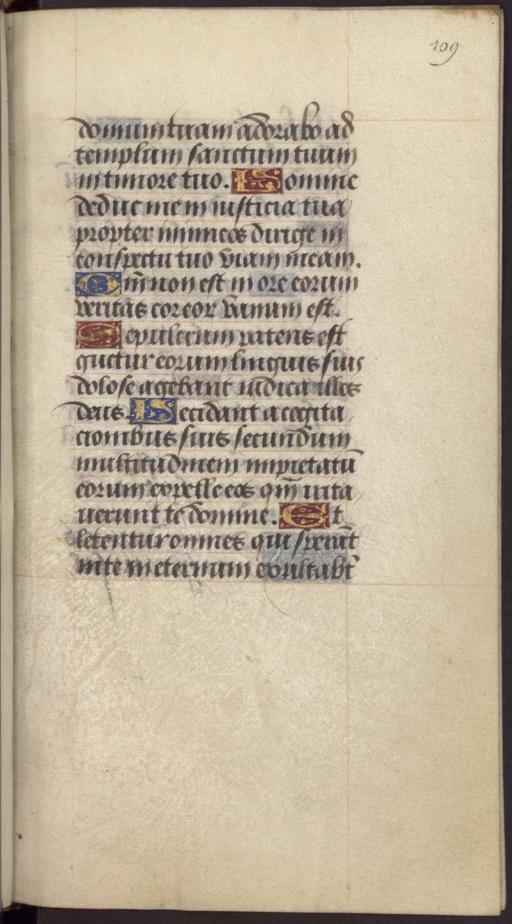 109
domum tuam adorabo ad
templum sanctum tuum
in timore tuo. Domine
deduc me in iusticia tua
propter inimicos dirige in
conspectu tuo viam meam.
Qm̄ non est in ore eorum
veritas cor eor vanum est.
Sepulcrum patens est
guctur eorum linguis suis
dolose agebant iudica illos
deus. Decidant a cogita
cionibus suis secundum
multitudinem impietatū
eorum expelle eos qm̄ irrita
uerunt te domine. Et
letentur omnes qui sperāt
in te in eternum exultabt̄